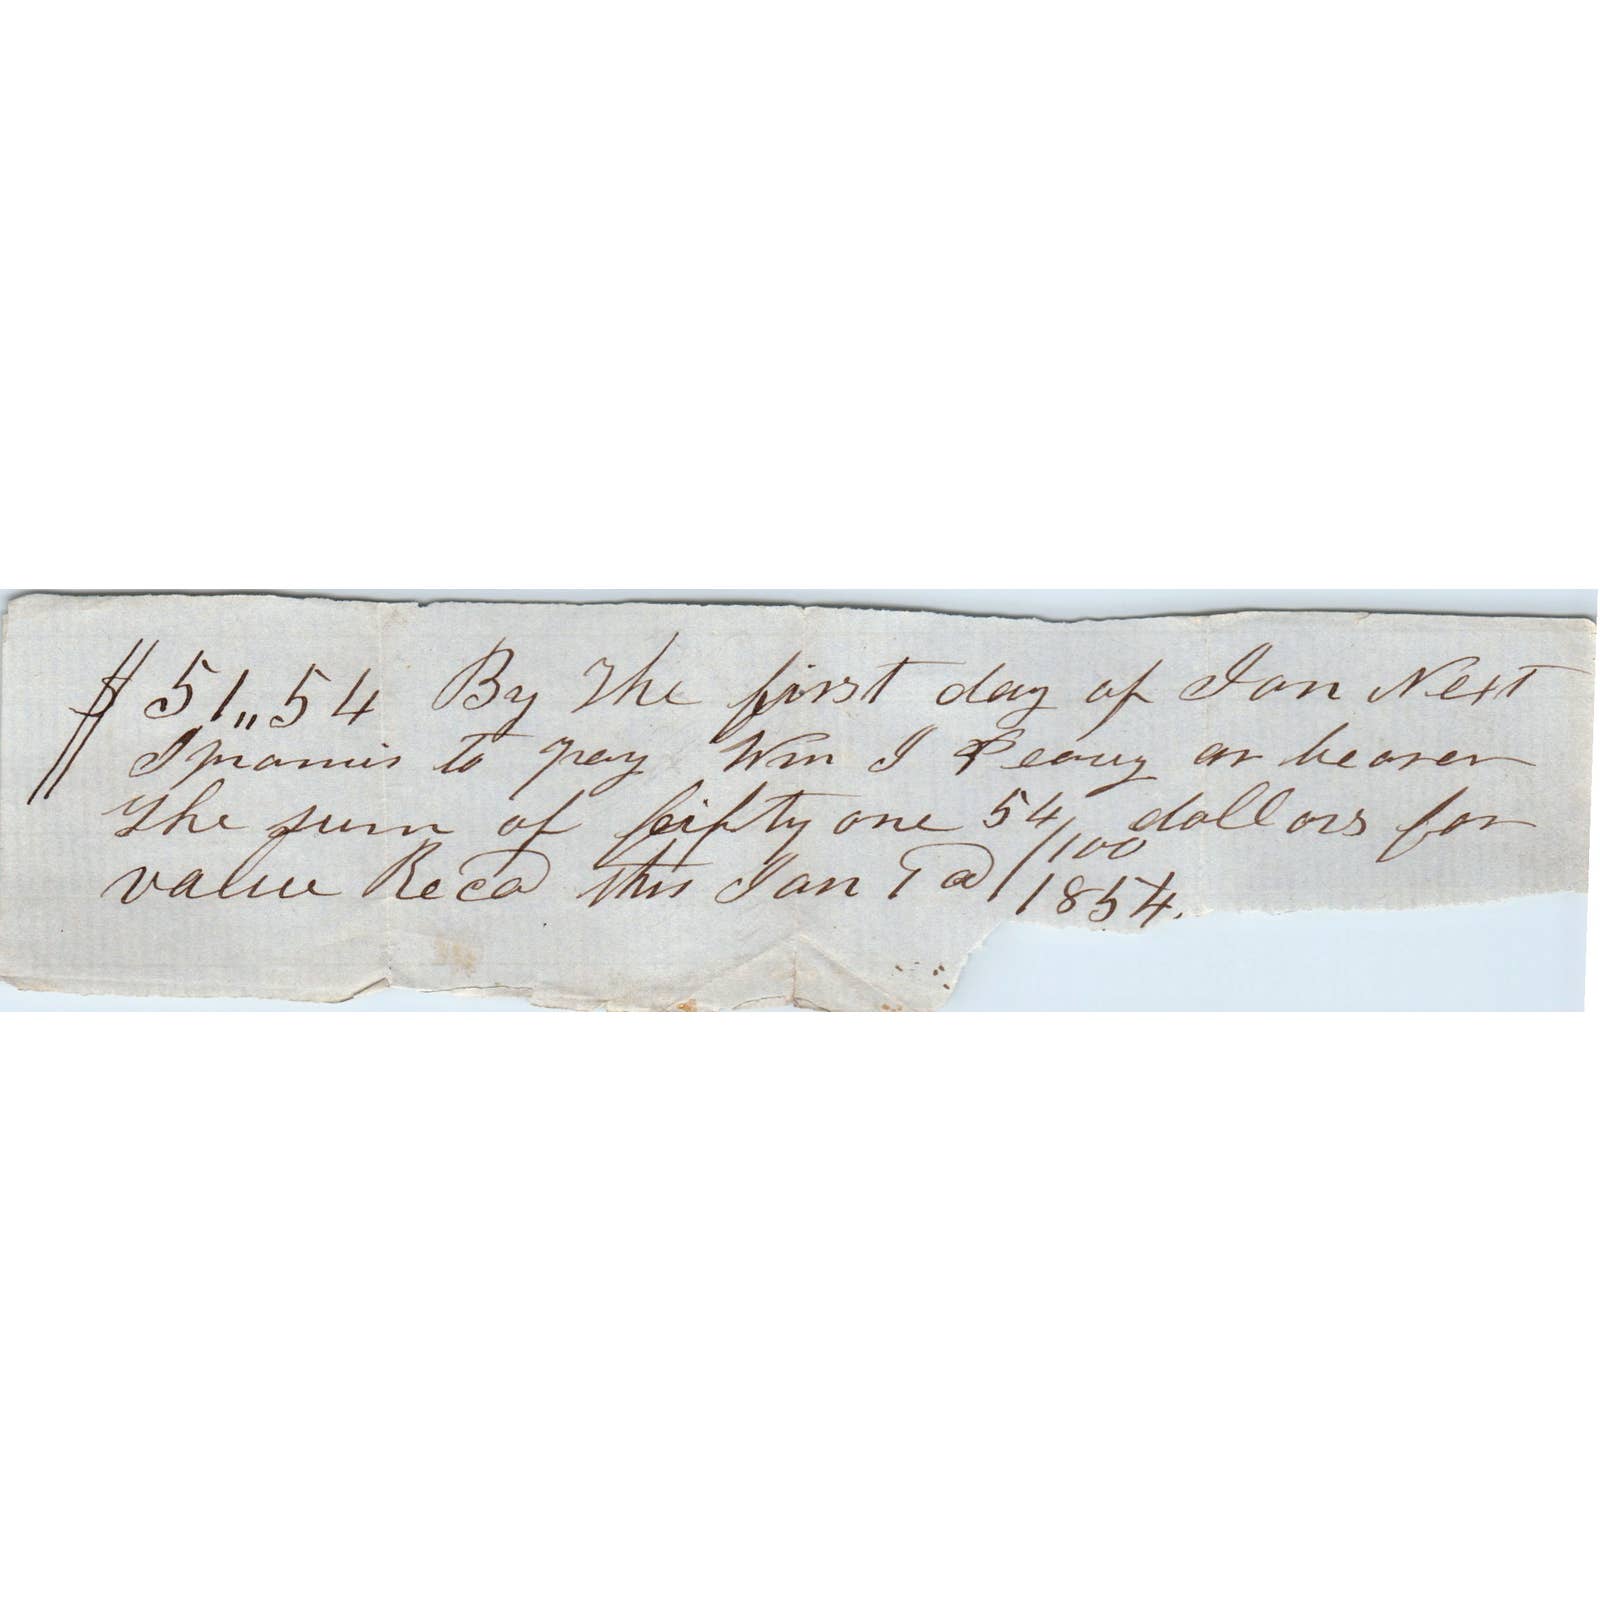 $51,,54 By The first day of Jan Next
I promis to pay Wm J Peavy or bearer
The sum of feifty one 54/100 dollars for
value Recd this Jan 1854.